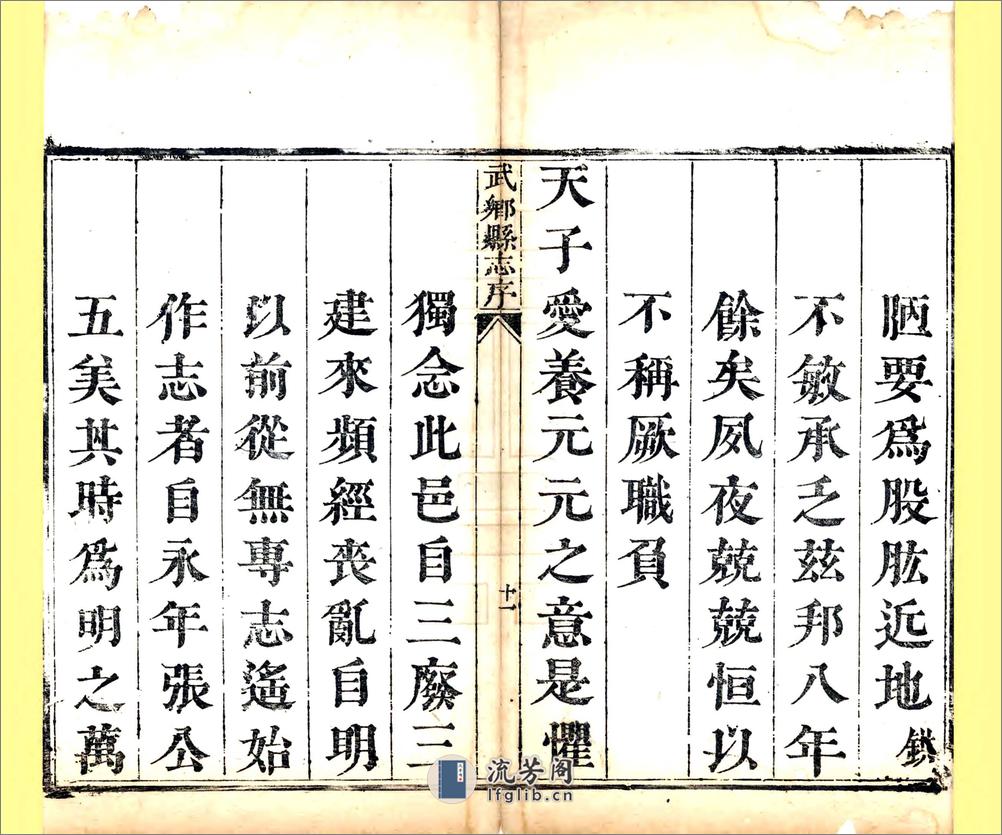 陋要爲股肱近地鉷
不敏承乏茲邦八年
餘矣夙夜兢兢恒以
不稱厥職負
天子愛養元元之意是懼
武鄉縣志序
十一
獨念此邑自三廢三
建來頻經喪亂自明
以前從無專志遙始
作志者自永年張公
五美其時爲明之萬
流芳阁
lfglib.cn